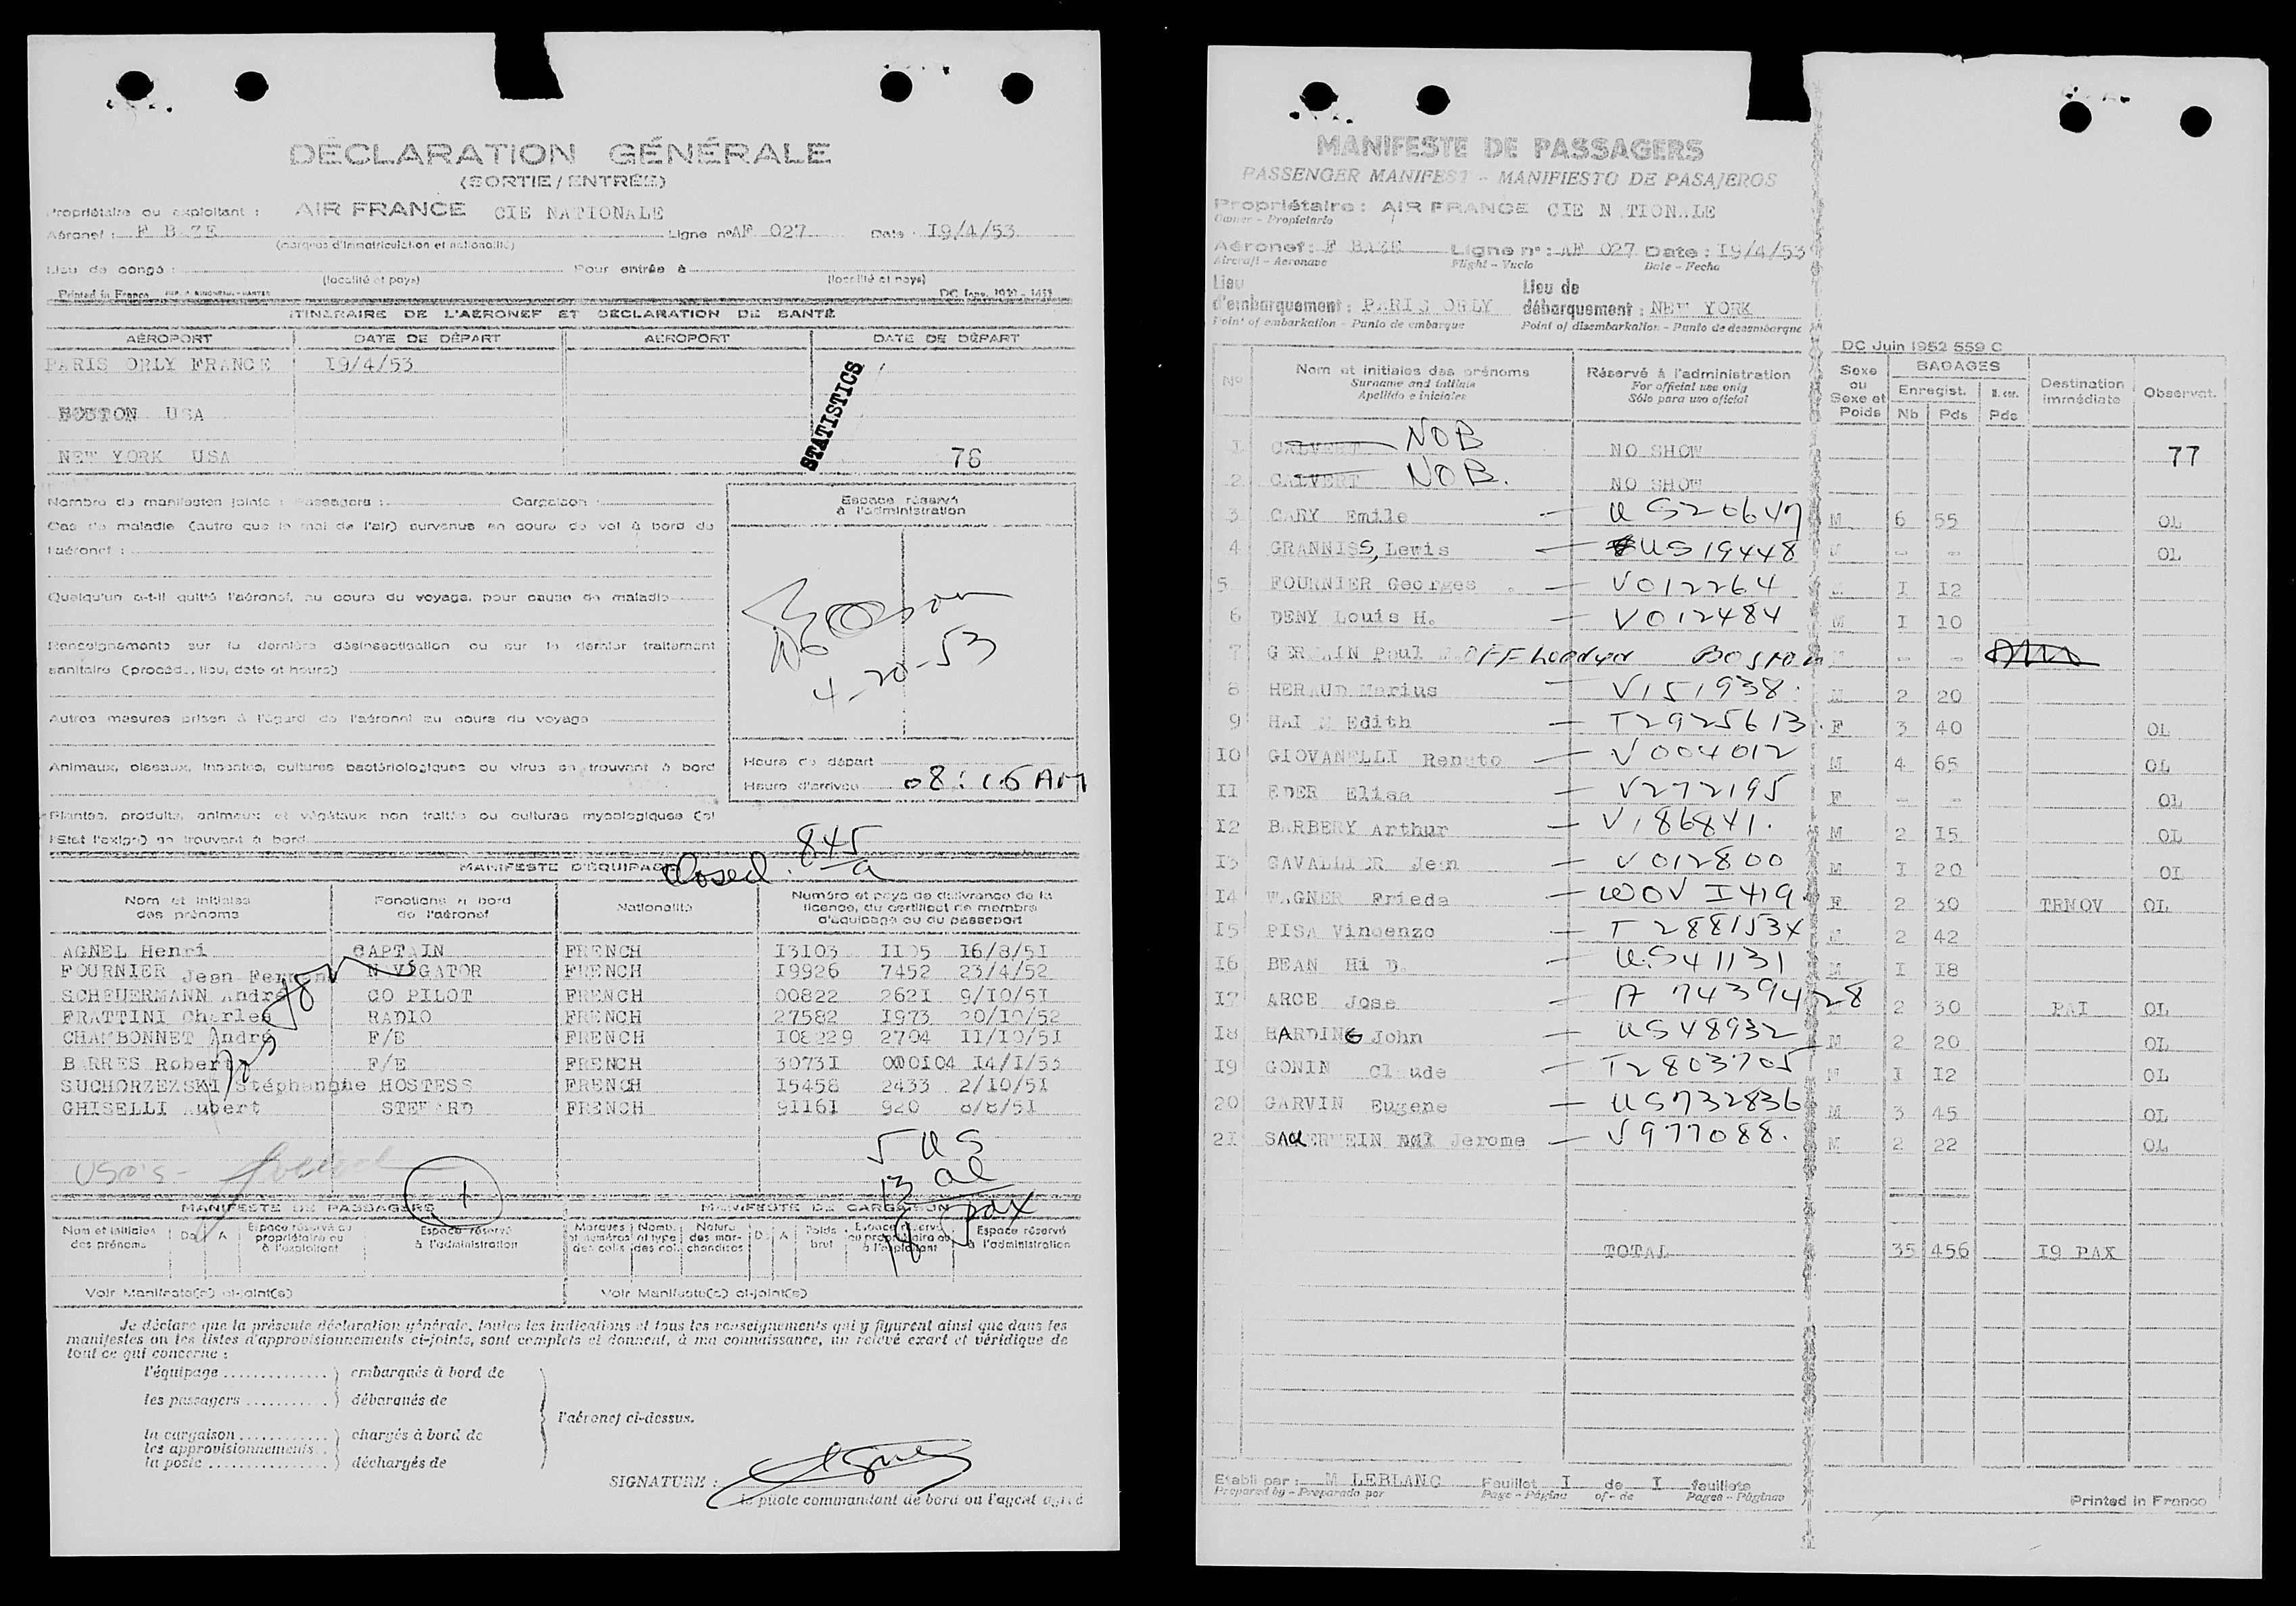 DÉCLARATION GÉNÉRALE
(SORTIE / ENTRÉE)
Propriétaire ou exploitant : AIR FRANCE CIE NATIONALE
Aéronef : F B ZE Ligne nº AF 027 Date : I9/4/53
(marques d'immatriculation et nationalité)
Lieu de congé : Pour entrée à
(localité et pays) (localité et pays)
Printed in France
ITINÉRAIRE DE L'AÉRONEF ET DÉCLARATION DE SANTÉ
AÉROPORT DATE DE DÉPART AÉROPORT DATE DE DÉPART
PARIS ORLY FRANCE I9/4/53
STATISTICS
BOSTON USA
NEW YORK USA 76
Nombre de manifestes joints : Passagers : Cargaison :
Espace réservé
à l'administration
Cas de maladie (autre que le mal de l'air) survenus en cours de vol à bord de
l'aéronef :
Quelqu'un a-t-il quitté l'aéronef, au cours du voyage, pour cause de maladie
Renseignements sur la dernière désinsectisation ou sur le dernier traitement
sanitaire (procédé, lieu, date et heure)
4-20-53
Autres mesures prises à l'égard de l'aéronef au cours du voyage
Animaux, oiseaux, insectes, cultures bactériologiques ou virus se trouvant à bord
Heure de départ
Heure d'arrivée 08:16 AM
Plantes, produits, animaux et végétaux non traités ou cultures mycologiques (si
l'Etat l'exige) se trouvant à bord
MANIFESTE D'ÉQUIPAGE
Closed. 845/a
Nom et initiales des prénoms Fonctions à bord de l'aéronef Nationalité Numéro et pays de délivrance de la licence, du certificat de membre d'équipage ou du passeport
AGNEL Henri CAPTAIN FRENCH I3103 II05 I6/8/5I
FOURNIER Jean Fernan N VIGATOR FRENCH I9926 7452 23/4/52
SCHEUERMANN André CO PILOT FRENCH 00822 262I 9/I0/5I
FRATTINI Charles RADIO FRENCH 27582 I973 20/I0/52
CHAMBONNET André F/E FRENCH I08229 2704 II/I0/5I
BARRES Robert F/E FRENCH 3073I 000I04 I4/I/53
SUCHORZEZSKI Stéphanghe HOSTESS FRENCH I5458 2433 2/I0/5I
GHISELLI Aubert STEWARD FRENCH 9II6I 920 8/8/5I
5 US
13 al
18 pax
1
MANIFESTE DE PASSAGERS MANIFESTE DE CARGAISON
Nom et initiales des prénoms De A Espace réservé au propriétaire ou à l'exploitant Espace réservé à l'administration Marques et numéros des colis Nomb. et type des col. Nature des marchandises D. A Poids brut Espace réservé au propriétaire ou à l'exploitant Espace réservé à l'administration
Voir Manifeste(s) ci-joint(s) Voir Manifeste(s) ci-joint(s)
Je déclare que la présente déclaration générale, toutes les indications et tous les renseignements qui y figurent ainsi que dans les
manifestes ou les listes d'approvisionnements ci-joints, sont complets et donnent, à ma connaissance, un relevé exact et véridique de
tout ce qui concerne :
l'équipage embarqués à bord de
les passagers débarqués de
l'aéronef ci-dessus.
la cargaison chargés à bord de
les approvisionnements
la poste déchargés de
SIGNATURE :
le pilote commandant de bord ou l'agent agréé
MANIFESTE DE PASSAGERS
PASSENGER MANIFEST - MANIFIESTO DE PASAJEROS
Propriétaire : AIR FRANCE CIE N TIONALE
Owner - Propietario
Aéronef : F BAZE Ligne nº : AF 027 Date : I9/4/53
Aircraft - Aeronave Flight - Vuelo Date - Fecha
Lieu d'embarquement : PARIS ORLY Lieu de débarquement : NEW YORK
Point of embarkation - Punto de embarque Point of disembarkation - Punto de desembarque
DC Juin 1952 559 C
Nº Nom et initiales des prénoms Réservé à l'administration Sexe ou Sexe et Poids BAGAGES Destination immédiate Observat.
Surname and initials For official use only Enregist.
Apellido e iniciales Sólo para uso oficial Nb Pds Pds
1 CALVERT NOB NO SHOW 77
2 CALVERT NOB. NO SHOW
3 CARY Emile — US20647 M 6 55 OL
4 GRANNISS, Lewis — US19448 - - OL
5 FOURNIER Georges — V012264 I I2
6 DENY Louis H. — V012484 M I 10
7 GERMAIN Paul OFFLoaded Boston - -
8 HERAUD Marius — V151938. M 2 20
9 HAI M Edith — T2925613. F 3 40 OL
10 GIOVANELLI Renato — V004012 M 4 65 OL
II EDER Elisa — V272195 F - - OL
I2 BARBERY Arthur — V186841. M 2 I5 OL
I3 GAVALLIER Jean — V012800 M I 20 OL
I4 WAGNER Frieda — WOV I419 F 2 30 TRNOV OL
I5 PISA Vincenzo — T 2881534 M 2 42
I6 BEAN Hi D. — US41131 M I I8
I7 ARCE Jose — A 7439428 2 30 PAI OL
I8 HARDING John — US48932 M 2 20 OL
I9 GONIN Claude — T2803705 M I I2 OL
20 GARVIN Eugene — US732836 M 3 45 OL
2I SAUERWEIN Jerome — V977088. M 2 22 OL
TOTAL 35 456 I9 PAX
Etabli par : M LEBLANC Feuillet I de I feuillets
Prepared by - Preparado por Page - Página of - de Pages - Páginas
Printed in France